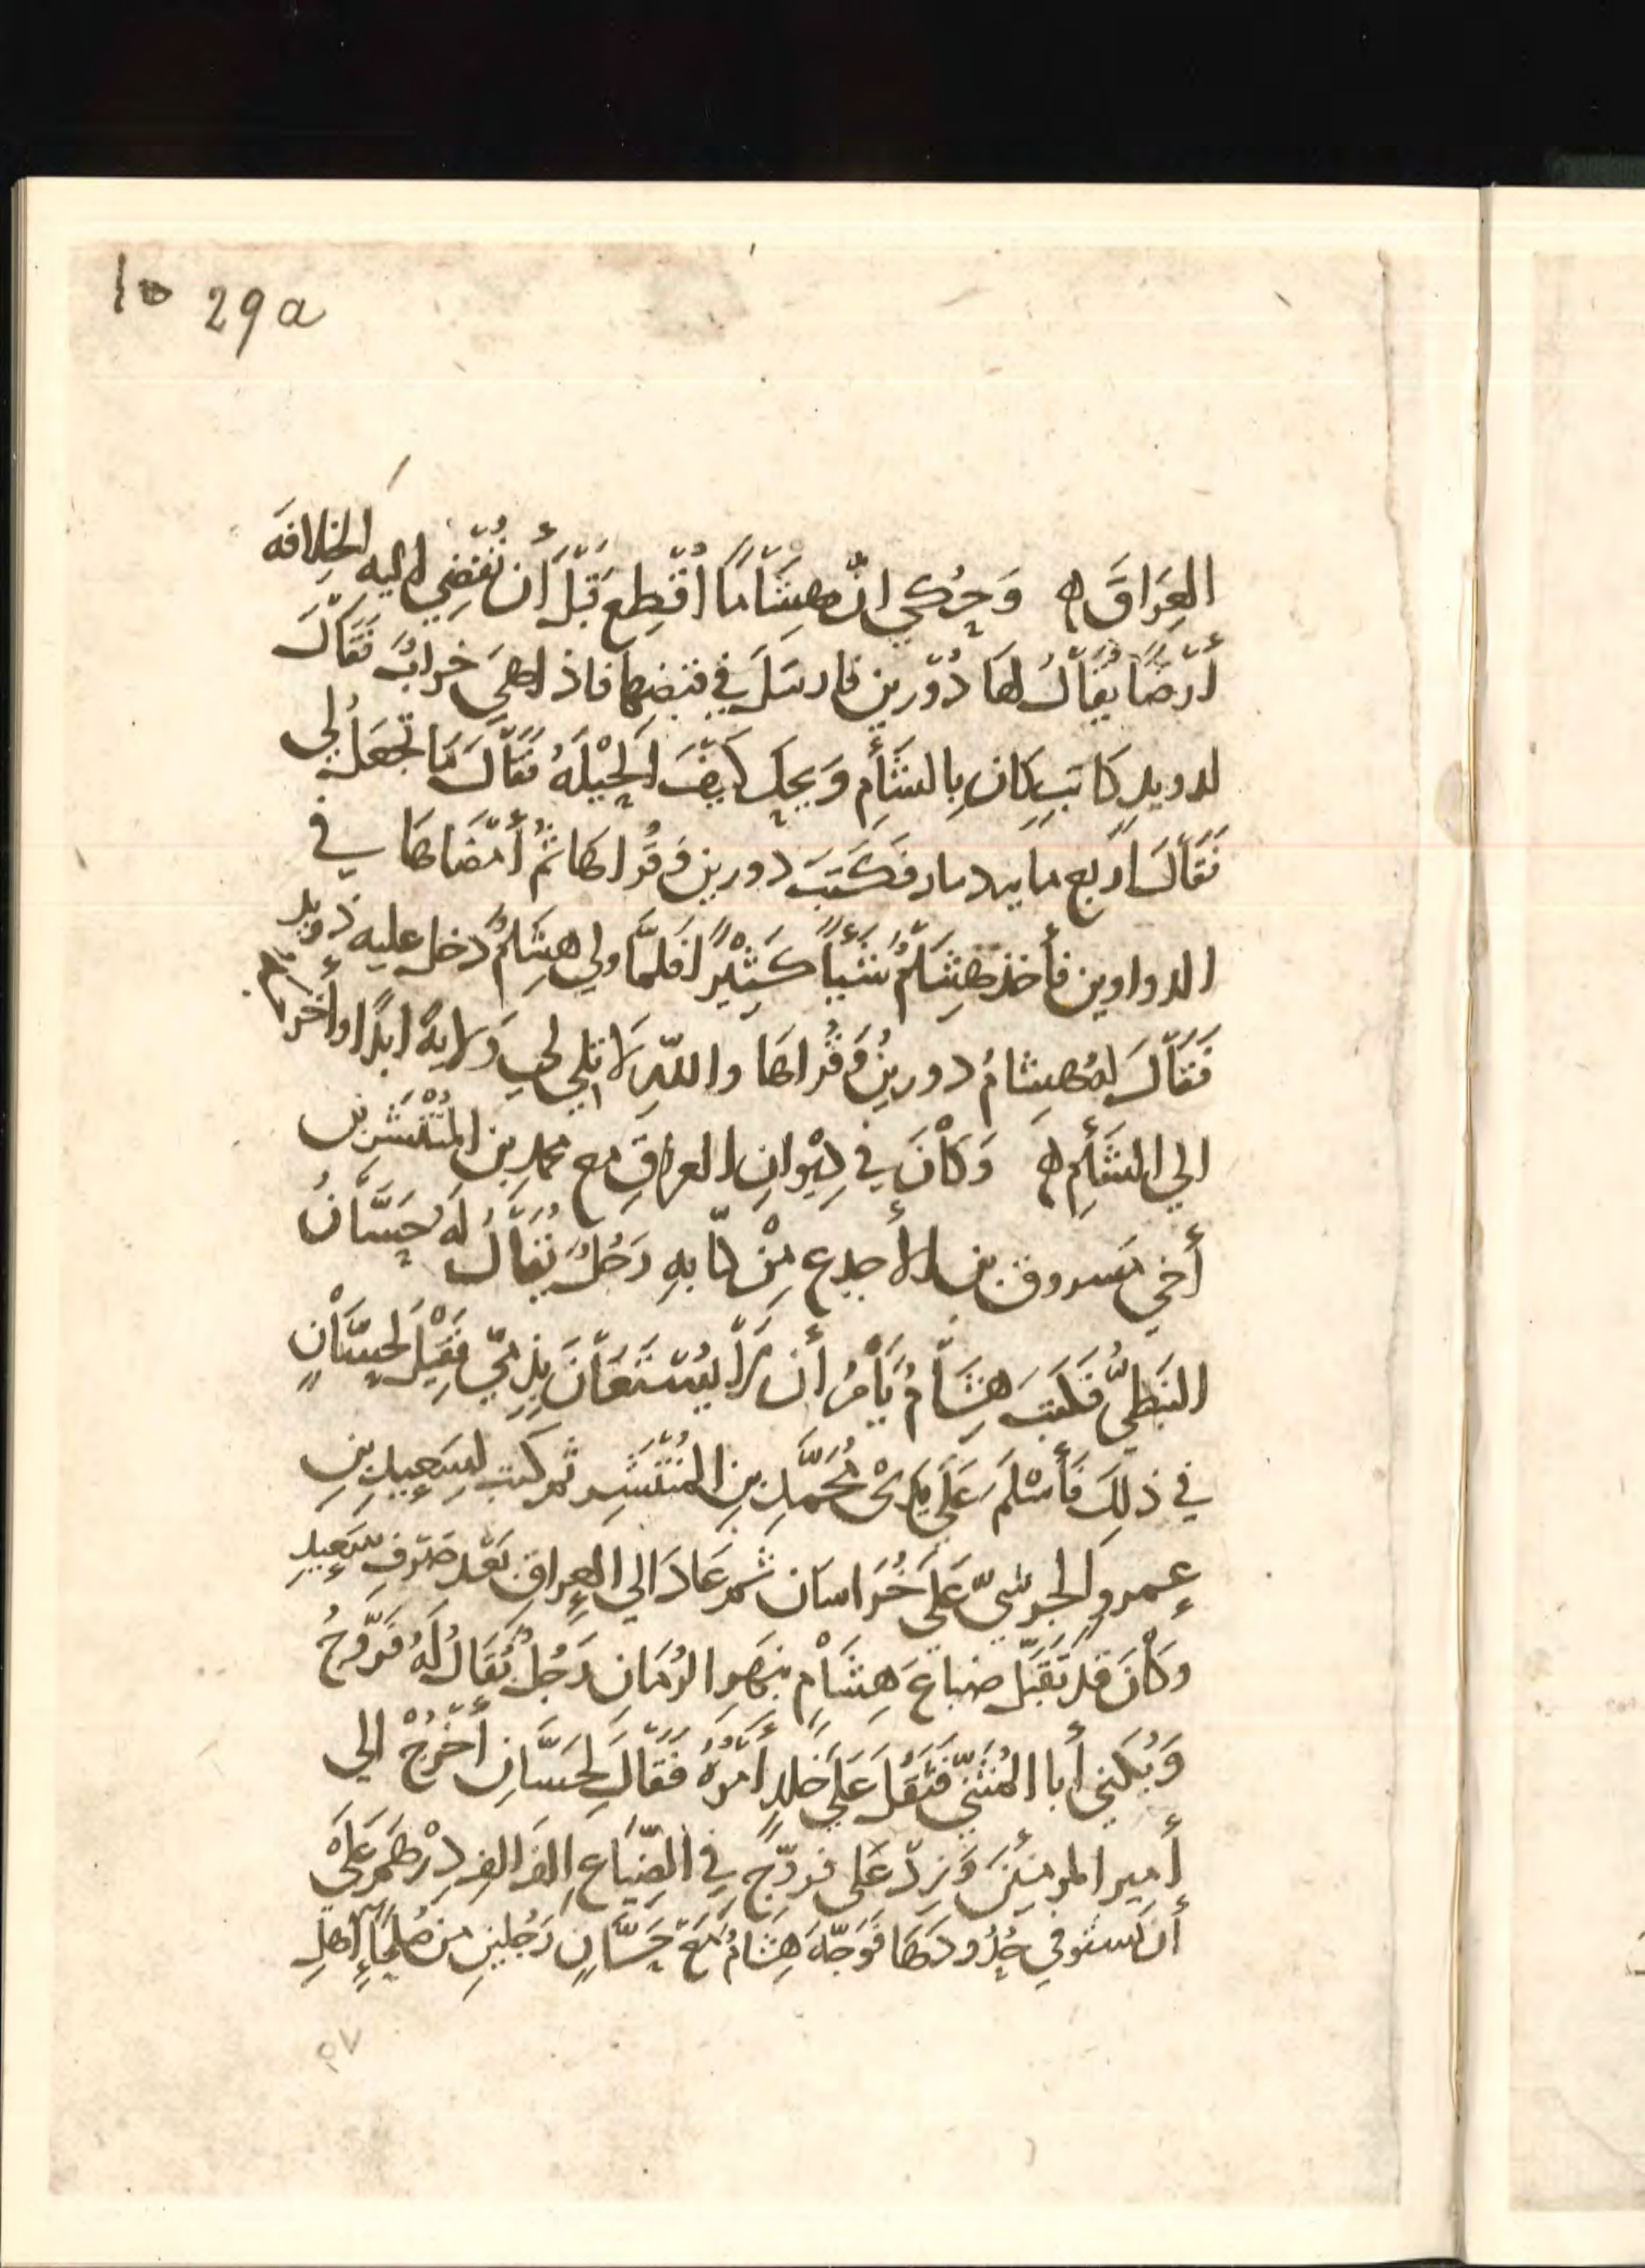 10 29a
العِرَاقَ ه وَحُكي انّ هِشَامًا اُقْطِع قَبْلَ أَن تُفْضِي اليه الخِلافَه
أَرْضًا يُقَالُ لهَا دُوْرين فارسَلَ في قبضها فاذا هيَ خرابٌ فَقَالَ
لدويدِ كَاتبٍ كان بِالشَأمِ وَيحك كَيْفَ الحِيْلَةُ فقَالَ مَا تجعَلُ لي
فَقَالَ اربع مايه دينار فكَتَبَ دورين وَقُراهَا ثم أَمْضَاهَا في
الدواوين فأخذ هِشَامٌ شَيْأً كَثِيْرًا فَلمَّا ولي هِشَامٌ دخل عليه ذويد
فَقَالَ لهُ هِشامُ دورينُ وَقُراهَا واللّهِ لا تلي لي وَلايةً ابدًا وأخرجه
الي الشَأمِ ه وَكَانَ في دِيْوانِ العراقِ مع محمد بن المُنْتَشر بن
أخي مَسروق بن الأجدع مِنْ كتّابهِ رَجُلٌ يُقَالُ لَهُ حَسَّانُ
النبَطيُّ فكتبَ هِشَامٌ يَأْمُرُ أن لا يُسْتعَانَ بِذِميّ فقِيْلَ لحسَّانٍ
في ذلِكَ فَأَسْلَمَ عَلَي يَدَيْ مُحَمَّدِ بنِ المُنْتَشِر ثم كتب لسَعِيدِ بنِ
عمرو الجرشيّ عَلَي خُرَاسان ثمّ عَادَ الي العِراقِ بَعْد صَرْفِ سَعِيدٍ
وكَانَ قد تَقَبّل ضياعَ هِشَامٍ بنَهرِ الرُمَانِ رَجُلٌ يُقَالُ لَهُ فَرُّوخُ
وَيُكَني أبا المُثَنّي فَثَقُلَ عَلَي خَالدٍ أَمْرُهُ فَقَالَ لِحَسَّانِ أُخْرُجْ الي
أمير المومنِيْنَ وَزِدْ عَلى فرّوخ في الضِّيَاعِ الفَ الفِ دِرْهَمٍ عَلَيْ
أَن تَستوفي حُدُودَهَا فَوَجّهَ هِشَامُ مَعَ حَسَّانٍ رَجُلينِ من صُلحَاءِ اهلِ
٢٧